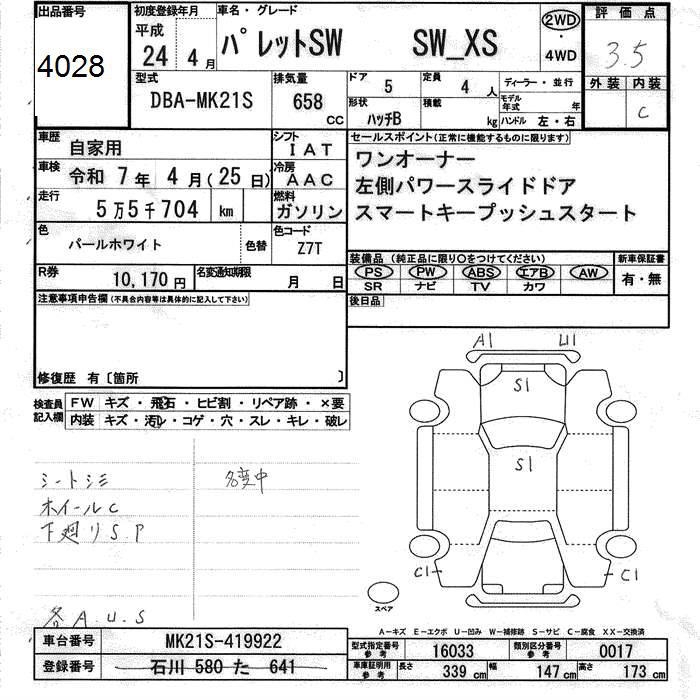 出品番号
4028
初度登録年月
平成
24年 4月
車名・グレード
パレットSW SW_XS
2WD
・
4WD
評価点
3.5
外装 内装
C
型式
DBA-MK21S
排気量
658 CC
ドア 5
定員 4 人
形状 ハッチB
積載 kg
ディーラー・並行
モデル年式 年
ハンドル 左・右
車歴 自家用
シフト IAT
車検 令和 7年 4月(25日)
冷房 AAC
走行 5万5千704 km
燃料 ガソリン
色 パールホワイト 色替
色コード Z7T
R券 10,170円
名変通知期限 月 日
セールスポイント(正常に機能するものに限ります)
ワンオーナー
左側パワースライドドア
スマートキープッシュスタート
装備品(純正品に限り○をつけてください)
新車保証書
PS PW ABS エアB AW
SR ナビ TV カワ
有・無
後日品
注意事項申告欄(不具合内容等は具体的に記入して下さい)
修復歴 有〔箇所 〕
検査員記入欄
FW キズ・飛石・ヒビ割・リペア跡・×要
内装 キズ・汚レ・コゲ・穴・スレ・キレ・破レ
シートシミ
ホイールC
下廻りSP
各A.U.S
名変中
A1 U1
S1
S1
C1 C1
スペア
A-キズ E-エクボ U-凹み W-補修跡 S-サビ C-腐食 XX-交換済
車台番号 MK21S-419922
登録番号 石川 580 た 641
型式指定番号 参考 16033
類別区分番号 参考 0017
車庫証明用 参考 長さ 339 cm 幅 147 cm 高さ 173 cm